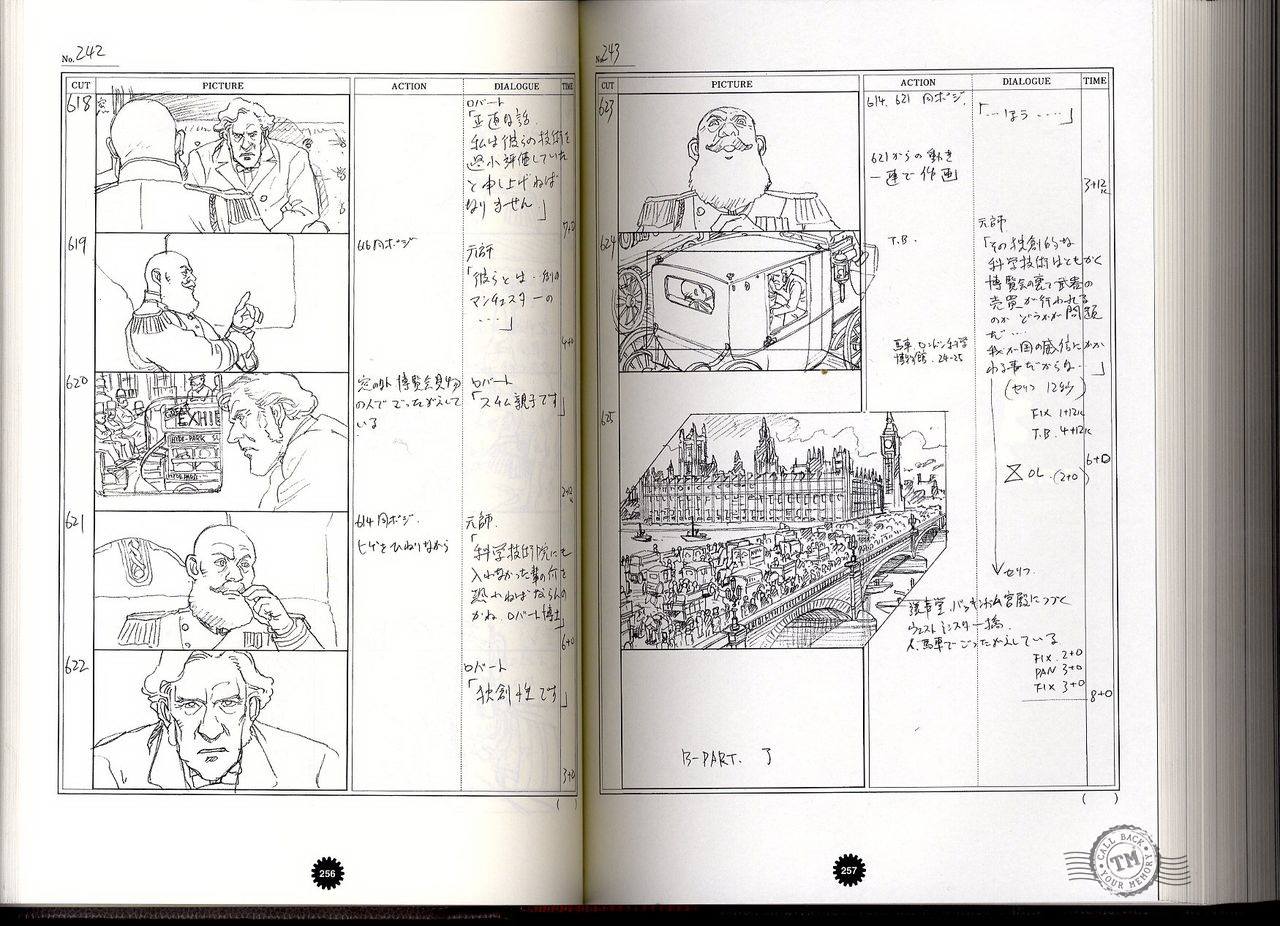 No. 242
CUT PICTURE ACTION DIALOGUE TIME
618
窓
ロバート
「正直な話、
私は彼らの技術を
過小評価していた
と申し上げねば
なりません」
7+0
619
616 同ポジ
元帥
「彼らとは・例の
マンチェスターの
・・・・」
4+0
620
EXHIB
HYDE-PARK
窓の外 博覧会見物
の人でごったがえして
いる
ロバート
「スチム親子です」
2+12
621
614 同ポジ.
ヒゲをひねりながら
元帥.
「
科学技術院にも
入れなかった輩の何を
恐れねばならんの
かね、ロバート博士」
6+0
622
ロバート
「独創性です」
3+0
( )
256
No. 243
CUT PICTURE ACTION DIALOGUE TIME
623
614, 621 同ポジ.
621からの動き
一連で作画
「…ほう・・・・」
3+12
624
T.B.
馬車、ロンドン科学
博物館、24-25
元帥
「その独創的な
科学技術はともかく
博覧会の裏で武器の
売買が行われる
のかどうかが問題
だ・・・
我が国の威信にかか
わる事だからな 」
(セリフ 12秒)
FIX 1+12
T.B. 4+12
6+0
OL. (2+0)
625
セリフ
バッキンガム宮殿につづく
ウェストミンスター橋.
人、馬車でごったがえしている
FIX. 2+0
PAN 3+0
FIX 3+0
8+0
B-PART. 了
( )
257
CALL BACK
TM
YOUR MEMORY